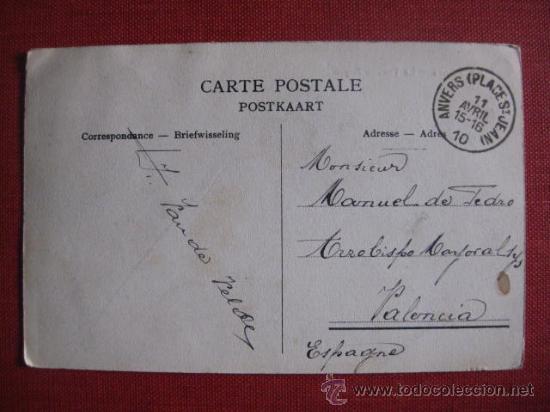 CARTE POSTALE
POSTKAART
Correspondance — Briefwisseling
Adresse — Adres
ANVERS (PLACE St JEAN)
11
AVRIL
15-16
10
Monsieur
Manuel de Pedro
Arzobispo Mayoral
Palencia
Espagne
Van de Velde
todocoleccion
www.todocoleccion.net